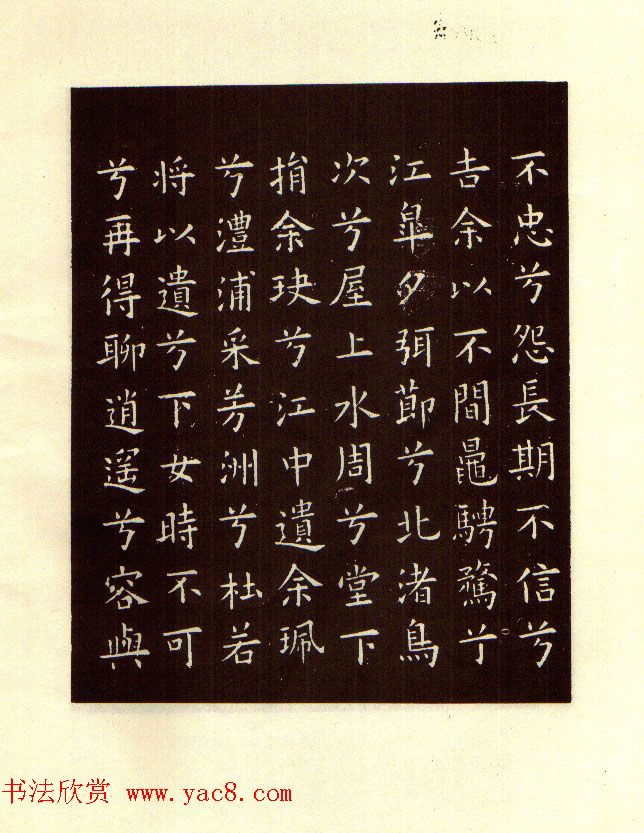 不忠兮怨長期不信兮
告余以不間鼂騁騖兮
江皐夕弭節兮北渚鳥
次兮屋上水周兮堂下
捐余玦兮江中遺余珮
兮澧浦采芳洲兮杜若
将以遺兮下女時不可
兮再得聊逍遥兮容與
书法欣赏 www.yac8.com